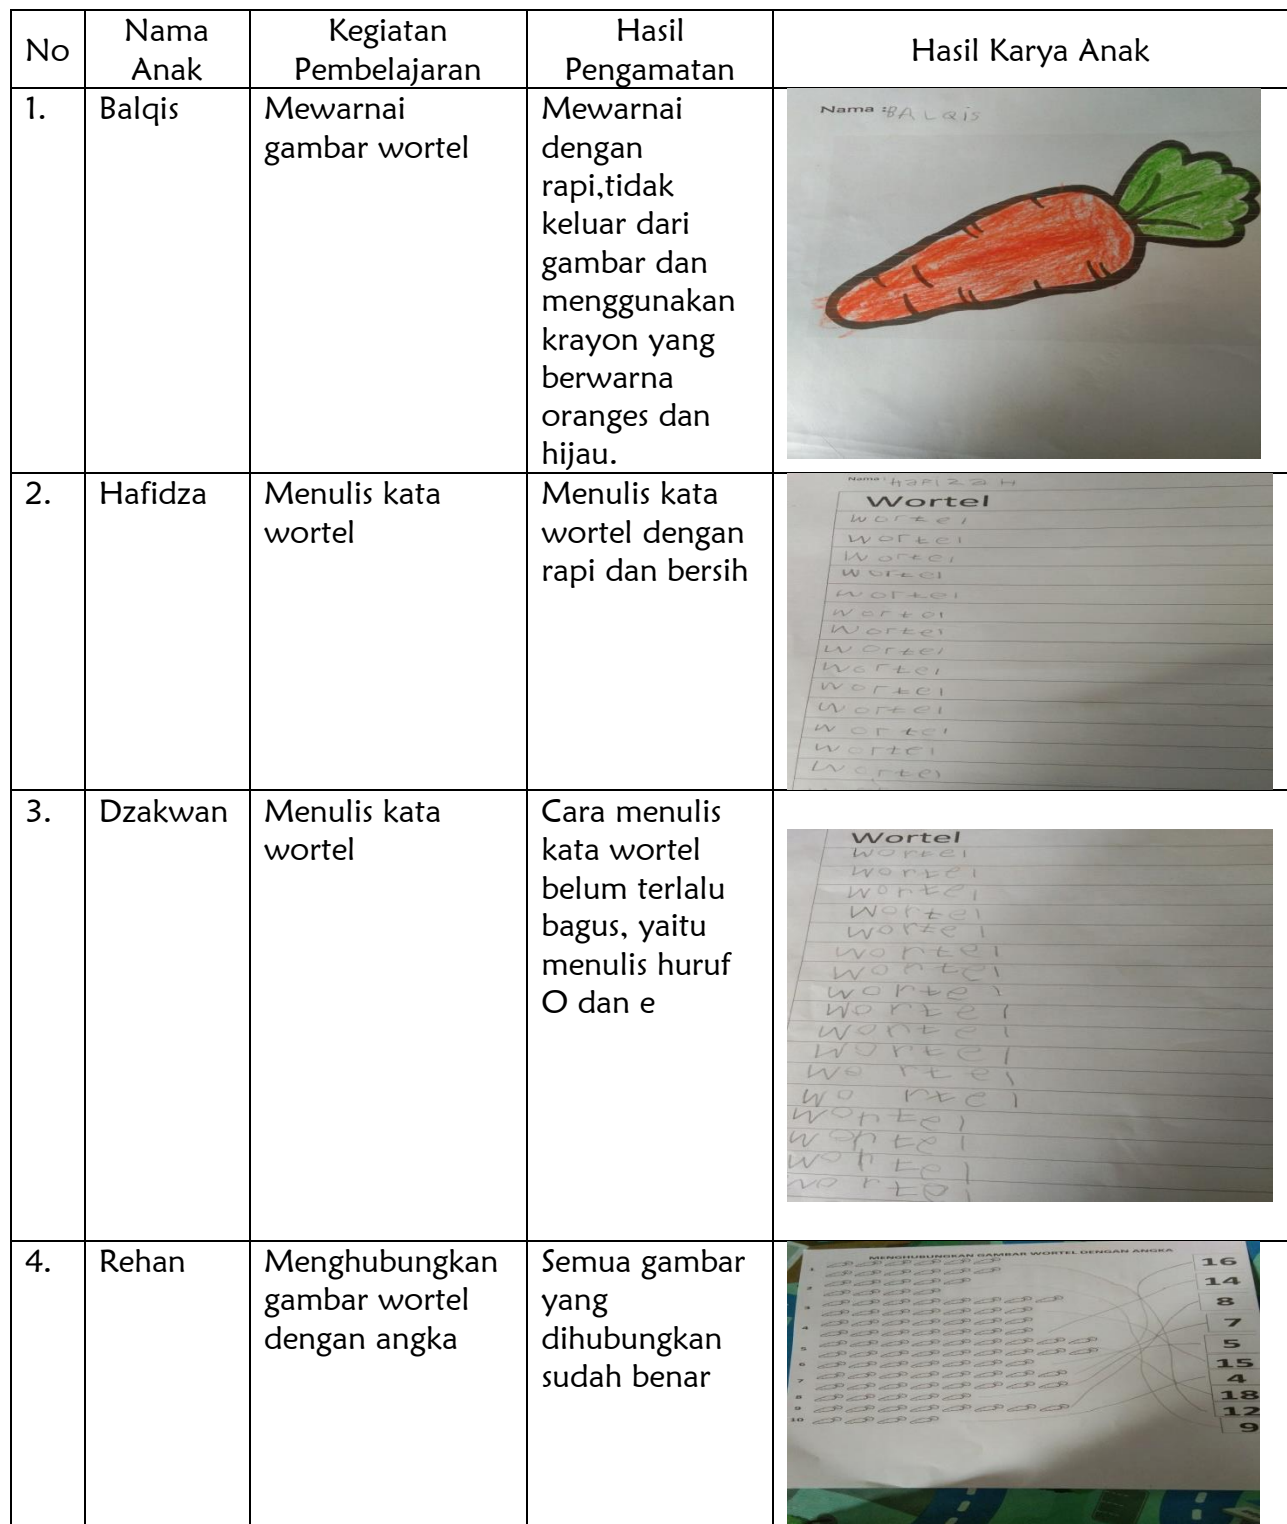 No
Nama
Anak
Kegiatan
Pembelajaran
Hasil
Pengamatan
Hasil Karya Anak
1.
Balqis
Mewarnai
gambar wortel
Mewarnai
dengan
rapi,tidak
keluar dari
gambar dan
menggunakan
krayon yang
berwarna
oranges dan
hijau.
Nama : BALQiS
2.
Hafidza
Menulis kata
wortel
Menulis kata
wortel dengan
rapi dan bersih
Nama : hapizaH
Wortel
wortel
wortel
wortel
wortel
wortel
wortel
wortel
wortel
wortel
wortel
wortel
wortel
wortel
wortel
3.
Dzakwan
Menulis kata
wortel
Cara menulis
kata wortel
belum terlalu
bagus, yaitu
menulis huruf
O dan e
Wortel
wortel
wortel
wortel
wortel
wortel
wortel
wortel
wortel
wortel
wortel
wortel
wortel
wo rtel
wortel
wortel
wortel
wortel
4.
Rehan
Menghubungkan
gambar wortel
dengan angka
Semua gambar
yang
dihubungkan
sudah benar
MENGHUBUNGKAN GAMBAR WORTEL DENGAN ANGKA
1
2
3
4
5
6
7
8
9
10
16
14
8
7
5
15
4
18
12
9